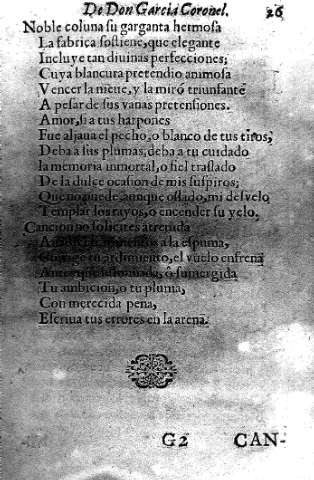 De Don Garcia Coronel. 26
Noble coluna su garganta hermosa
La fabrica sostiene, que elegante
Incluye tan diuinas perfecciones;
Cuya blancura pretendio animosa
Vencer la nieue, y la mirò triunfante
A pesar de sus vanas pretensiones.
Amor, si a tus harpones
Fue aljaua el pecho, o blanco de tus tiros,
Deba a sus plumas, deba a tu cuidado
la memoria inmortal, o fiel traslado
De la dulce ocasion de mis suspiros;
Que no puede, aunque ossado, mi desvelo
Templar sus rayos, o encender su yelo.
Cancion no solicites atreuida
a la espuma,
ardimiento, el vuelo enfrena
ò sumergida
Tu ambicion, o tu pluma,
Con merecida pena,
Escriua tus errores en la arena.
G2 CAN-